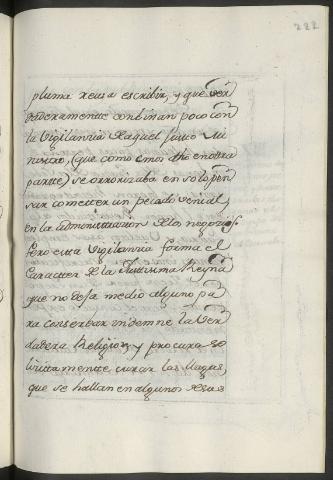 222
pluma reusa escribir, y que ver
daderamente conbinan poco con
la Vigilanzia de aquel Justo Mi
nistro, (que como emos dho en otra
partte) se orrorizaba en solo pen
sar cometter un pecado venial,
en la administrazion de los negozios.
Pero esta Vigilanzia forma el
Caractter de la Ilustrisima Reyna
que no deja medio alguno pa
ra conserbar indemne la Ver
dadera Religion, y procura so
lizitamentte curar las llagas,
que se hallan en algunos de sus